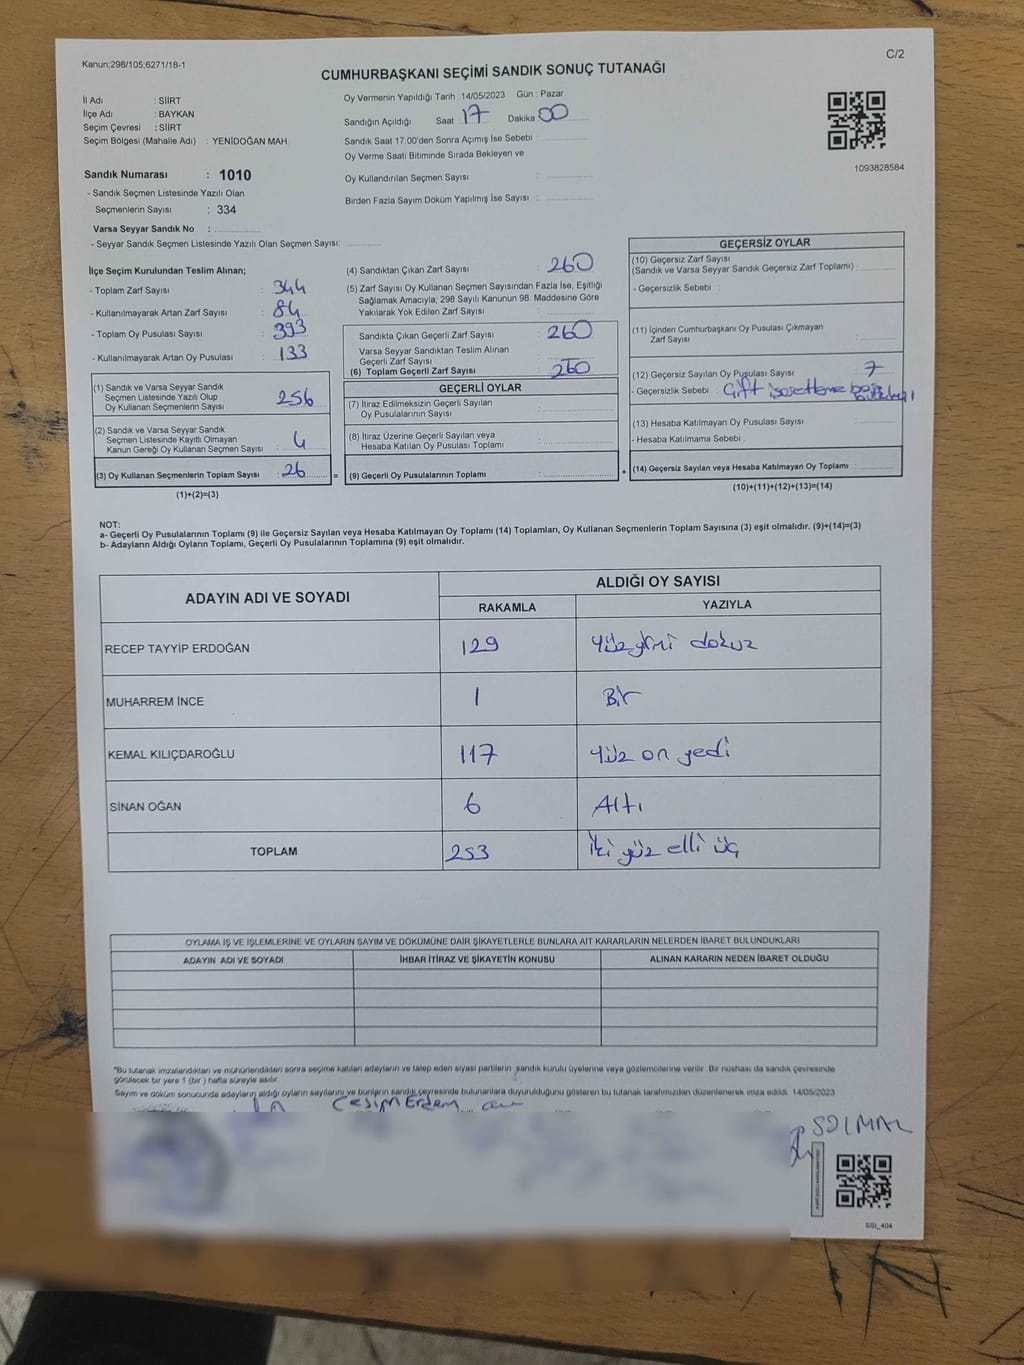 Kanun;298/105;6271/18-1
C/2
CUMHURBAŞKANI SEÇİMİ SANDIK SONUÇ TUTANAĞI
İl Adı : SİİRT
İlçe Adı : BAYKAN
Seçim Çevresi : SİİRT
Seçim Bölgesi (Mahalle Adı) : YENİDOĞAN MAH
Oy Vermenin Yapıldığı Tarih : 14/05/2023 Gün : Pazar
Sandığın Açıldığı Saat : 17 Dakika : 00
Sandık Saat 17:00'den Sonra Açımış İse Sebebi :
Oy Verme Saati Bitiminde Sırada Bekleyen ve
Oy Kullandırılan Seçmen Sayısı :
Birden Fazla Sayım Döküm Yapılmış İse Sayısı :
1093828584
Sandık Numarası : 1010
- Sandık Seçmen Listesinde Yazılı Olan
Seçmenlerin Sayısı : 334
Varsa Seyyar Sandık No :
- Seyyar Sandık Seçmen Listesinde Yazılı Olan Seçmen Sayısı:
İlçe Seçim Kurulundan Teslim Alınan;
- Toplam Zarf Sayısı : 344
- Kullanılmayarak Artan Zarf Sayısı : 84
- Toplam Oy Pusulası Sayısı : 393
- Kullanılmayarak Artan Oy Pusulası : 133
(1) Sandık ve Varsa Seyyar Sandık
Seçmen Listesinde Yazılı Olup
Oy Kullanan Seçmenlerin Sayısı : 256
(2) Sandık ve Varsa Seyyar Sandık
Seçmen Listesinde Kayıtlı Olmayan
Kanun Gereği Oy Kullanan Seçmen Sayısı : 4
(3) Oy Kullanan Seçmenlerin Toplam Sayısı : 26 =
(1)+(2)=(3)
(4) Sandıktan Çıkan Zarf Sayısı : 260
(5) Zarf Sayısı Oy Kullanan Seçmen Sayısından Fazla İse, Eşitliği
Sağlamak Amacıyla; 298 Sayılı Kanunun 98. Maddesine Göre
Yakılarak Yok Edilen Zarf Sayısı :
Sandıkta Çıkan Geçerli Zarf Sayısı : 260
Varsa Seyyar Sandıktan Teslim Alınan
Geçerli Zarf Sayısı :
(6) Toplam Geçerli Zarf Sayısı : 260
GEÇERLİ OYLAR
(7) İtiraz Edilmeksizin Geçerli Sayılan
Oy Pusulalarının Sayısı :
(8) İtiraz Üzerine Geçerli Sayılan veya
Hesaba Katılan Oy Pusulası Toplamı :
(9) Geçerli Oy Pusulalarının Toplamı : +
GEÇERSİZ OYLAR
(10) Geçersiz Zarf Sayısı
(Sandık ve Varsa Seyyar Sandık Geçersiz Zarf Toplamı) :
- Geçersizlik Sebebi :
(11) İçinden Cumhurbaşkanı Oy Pusulası Çıkmayan
Zarf Sayısı :
(12) Geçersiz Sayılan Oy Pusulası Sayısı : 7
- Geçersizlik Sebebi : Çift
(13) Hesaba Katılmayan Oy Pusulası Sayısı :
- Hesaba Katılmama Sebebi :
(14) Geçersiz Sayılan veya Hesaba Katılmayan Oy Toplamı :
(10)+(11)+(12)+(13)=(14)
NOT:
a- Geçerli Oy Pusulalarının Toplamı (9) ile Geçersiz Sayılan veya Hesaba Katılmayan Oy Toplamı (14) Toplamları, Oy Kullanan Seçmenlerin Toplam Sayısına (3) eşit olmalıdır. (9)+(14)=(3)
b- Adayların Aldığı Oyların Toplamı, Geçerli Oy Pusulalarının Toplamına (9) eşit olmalıdır.
ADAYIN ADI VE SOYADI
ALDIĞI OY SAYISI
RAKAMLA YAZIYLA
RECEP TAYYİP ERDOĞAN 129 Yüz yirmi dokuz
MUHARREM İNCE 1 Bir
KEMAL KILIÇDAROĞLU 117 Yüz on yedi
SİNAN OĞAN 6 Altı
TOPLAM 253 İki yüz elli üç
OYLAMA İŞ VE İŞLEMLERİNE VE OYLARIN SAYIM VE DÖKÜMÜNE DAİR ŞİKAYETLERLE BUNLARA AİT KARARLARIN NELERDEN İBARET BULUNDUKLARI
ADAYIN ADI VE SOYADI İHBAR İTİRAZ VE ŞİKAYETİN KONUSU ALINAN KARARIN NEDEN İBARET OLDUĞU
*Bu tutanak imzalandıktan ve mühürlendikten sonra seçime katılan adayların ve talep eden siyasi partilerin sandık kurulu üyelerine veya gözlemcilerine verilir. Bir nüshası da sandık çevresinde
görülecek bir yere 1 (bir) hafta süreyle asılır.
Sayım ve döküm sonucunda adayların aldığı oyların sayılarını ve bunların sandık çevresinde bulunanlara duyurulduğunu gösteren bu tutanak tarafımızdan düzenlenerek imza edildi. 14/05/2023
Erdem
SSİ_404